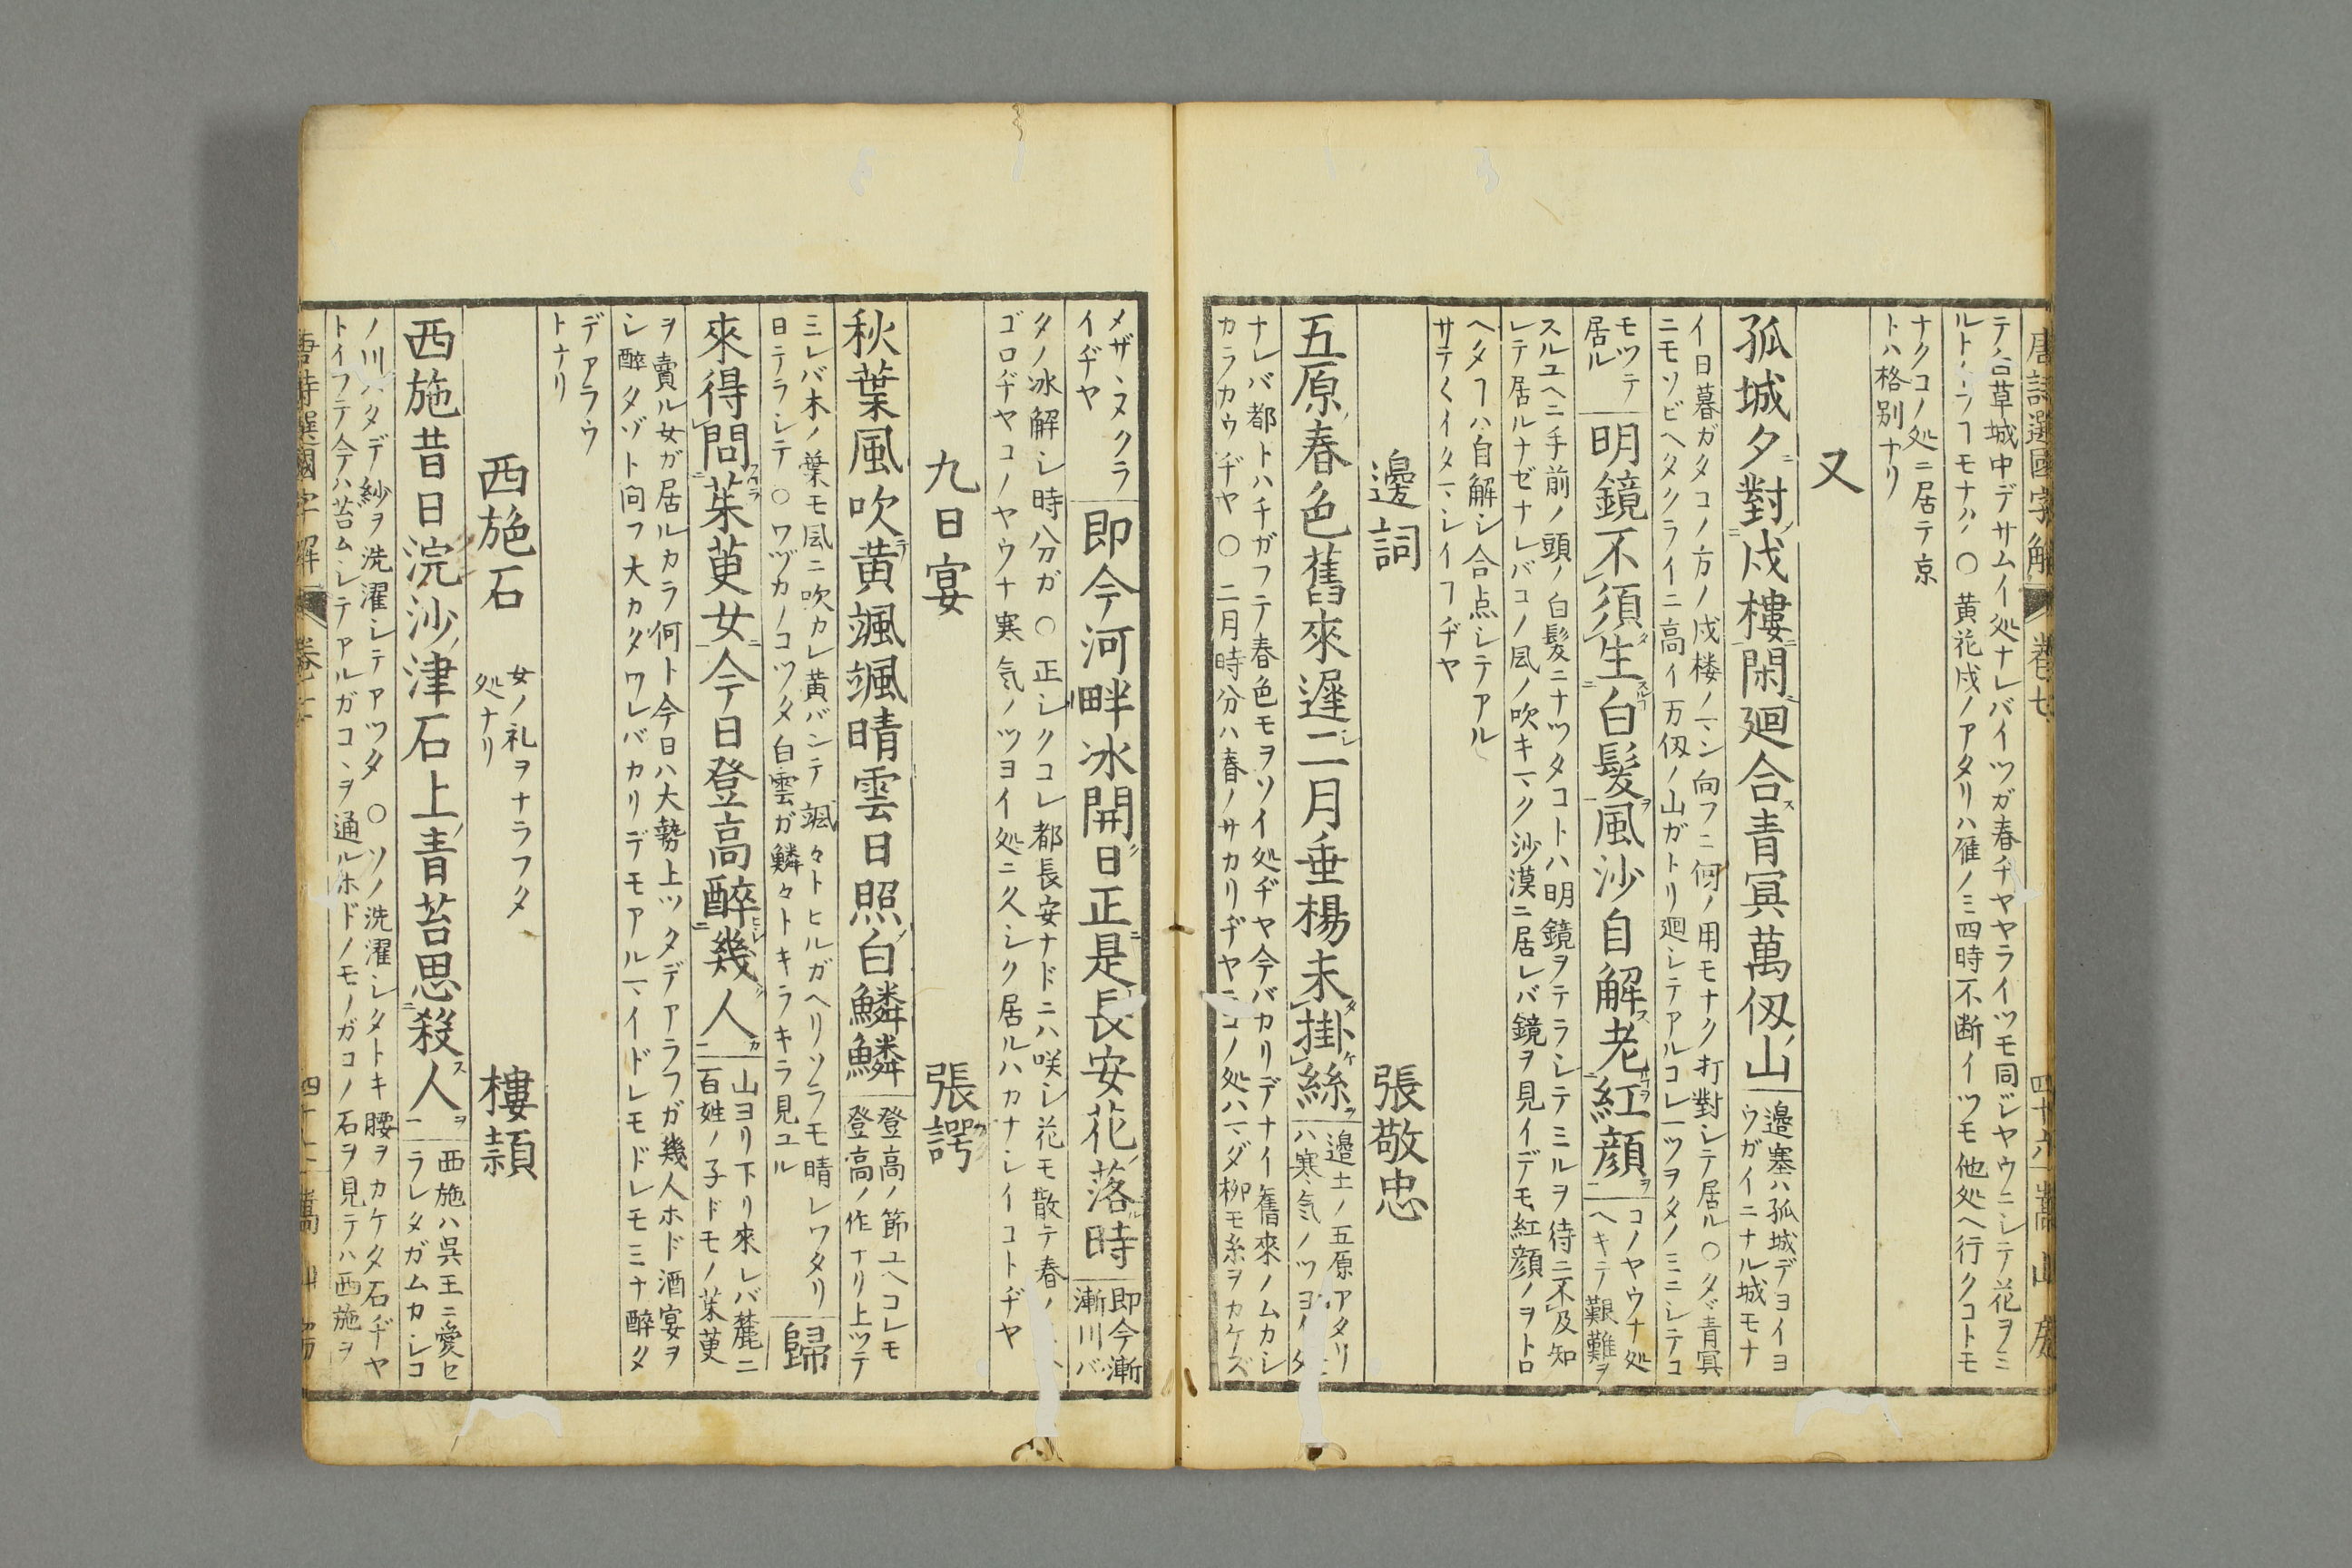 唐詩選國字解 卷七 四十六 嵩山房
テ合草城中デサムイ処ナレバイツガ春ヂヤヤライツモ同ジヤウニシテ花ヲミ
ルトイフヿモナク ○黄花戍ノアタリハ雁ノミ四時不断イツモ他処ヘ行クコトモ
ナクコノ処ニ居テ京
トハ格別ナリ
又
孤城夕對戍樓閑廻合青冥萬仭山
邊塞ハ孤城デヨイヨ
ウガイニナル城モナ
イ日暮ガタコノ方ノ戍楼ノマン向フニ何ノ用モナク打對シテ居ル○タヾ青冥
ニモソビヘタクライニ高イ万仭ノ山ガトリ廻シテアルコレ一ツヲタノミニシテコ
モツテ
居ル
明鏡不須生白髪風沙自解老紅顔
コノヤウナ処
ヘキテ艱難ヲ
スルユヘニ手前ノ頭ノ白髪ニナツタコトハ明鏡ヲテラシテミルヲ待ニ不及知
レテ居ルナゼナレバコノ風ノ吹キマク沙漠ニ居レバ鏡ヲ見イデモ紅顔ノヲトロ
ヘタヿハ自解シ合点シテアル
サテ〱イタマシイヿヂヤ
邊詞 張敬忠
五原春色舊來遲二月垂楊未掛絲
邊土ノ五原アタリ
ハ寒気ノツヨイ処
ナレバ都トハチガフテ春色モヲソイ処ヂヤ今バカリデナイ舊來ノムカシ
カラカウヂヤ ○二月時分ハ春ノサカリヂヤニコノ処ハマダ柳モ糸ヲカケズ
メザヽヌクラ
イヂヤ
即今河畔冰開日正是長安花落時
即今漸
漸川バ
タノ冰解シ時分ガ ○正シクコレ都長安ナドニハ咲シ花モ散テ春ノ
ゴロヂヤコノヤウナ寒気ノツヨイ処ニ久シク居ルハカナシイコトヂヤ
九日宴 張諤
秋葉風吹黄颯颯晴雲日照白鱗鱗
登高ノ節ユヘコレモ
登高ノ作ナリ上ツテ
ミレバ木ノ葉モ風ニ吹カレ黄バンテ颯々トヒルガヘリソラモ晴レワタリ
日テラシテ ○ワヅカノコツタ白雲ガ鱗々トキラキラ見ユル
歸
來得問茱萸女今日登高醉幾人
山ヨリ下リ來レバ麓ニ
百姓ノ子ドモノ茱萸
ヲ賣ル女ガ居ルカラ何ト今日ハ大勢上ツタデアラフガ幾人ホド酒宴ヲ
シ醉タゾト問フ大カダワレバカリデモアルマイドレモドレモミナ醉タ
デアラウ
トナリ
西施石 女ノ礼ヲナラフタ 処ナリ 樓頴
西施昔日浣沙津石上青苔思殺人
西施ハ呉王ニ愛セ
ラレタガムカシコ
ノ川バタデ紗ヲ洗濯シテアツタ ○ソノ洗濯シタトキ腰ヲカケタ石ヂヤ
トイフテ今ハ苔ムシテアルガコヽヲ通ルホドノモノガコノ石ヲ見テハ西施ヲ